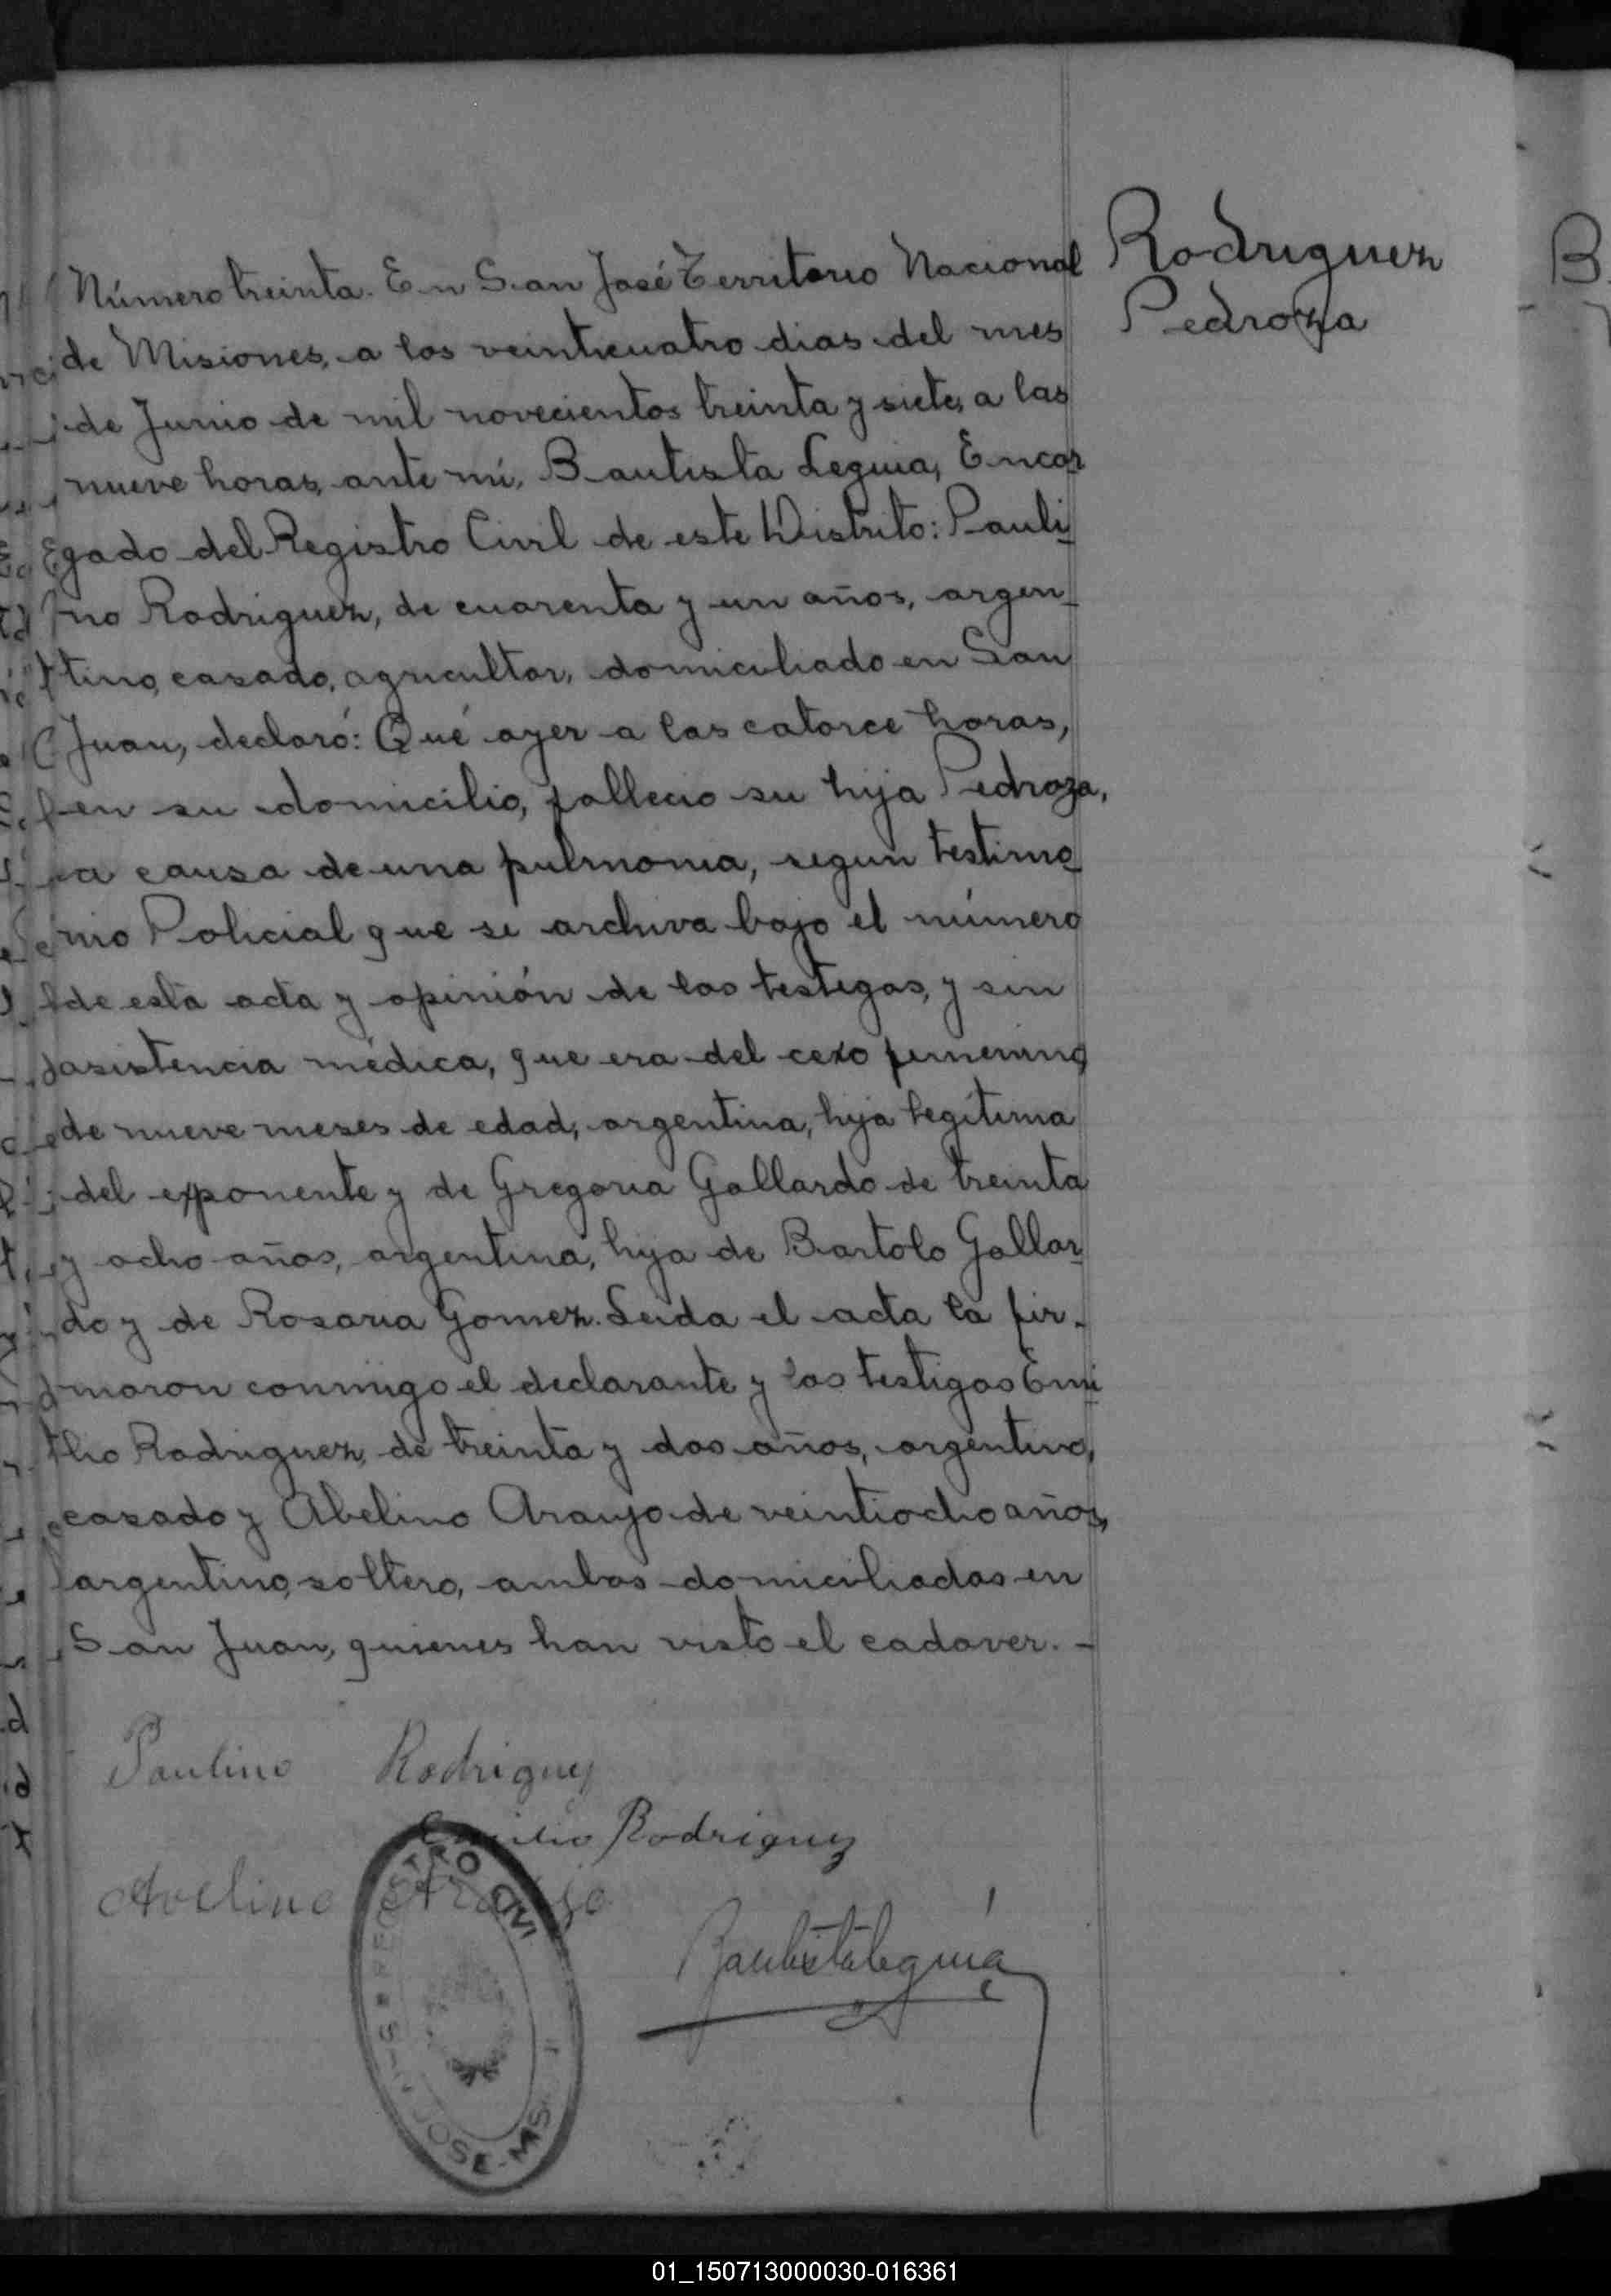 Rodriguez
Pedroza
Número treinta. En San José Territorio Nacional
de Misiones, a los veinticuatro dias del mes
de Junio de mil novecientos treinta y siete, a las
nueve horas, ante mí, Bautista Leguia, Encar
gado del Registro Civil de este Distrito: Pauli
no Rodriguez, de cuarenta y un años, argen
tino, casado, agricultor, domiciliado en San
Juan, declaró: Qué ayer a las catorce horas,
en su domicilio, fallecio su hija Pedroza,
a causa de una pulmonia, segun testimo
nio Policial que se archiva bajo el número
de esta acta y opinión de los testigos, y sin
asistencia médica, que era del cexo femenino,
de nueve meses de edad, argentina, hija legítima
del exponente y de Gregoria Gallardo de treinta
y ocho años, argentina, hija de Bartolo Gallar
do y de Rosaria Gomez. Leida el acta la fir-
maron conmigo el declarante y los testigos Emi
lio Rodriguez, de treinta y dos años, argentino,
casado y Abelino Araujo de veintiocho años,
argentino, soltero, ambos domiciliados en
San Juan, quienes han visto el cadaver. -
Paulino Rodriguez
Emilio Rodriguez
Avelino Araujo
Bautista Leguía
REGISTRO CIVIL
JOSE - MS.
01_150713000030-016361